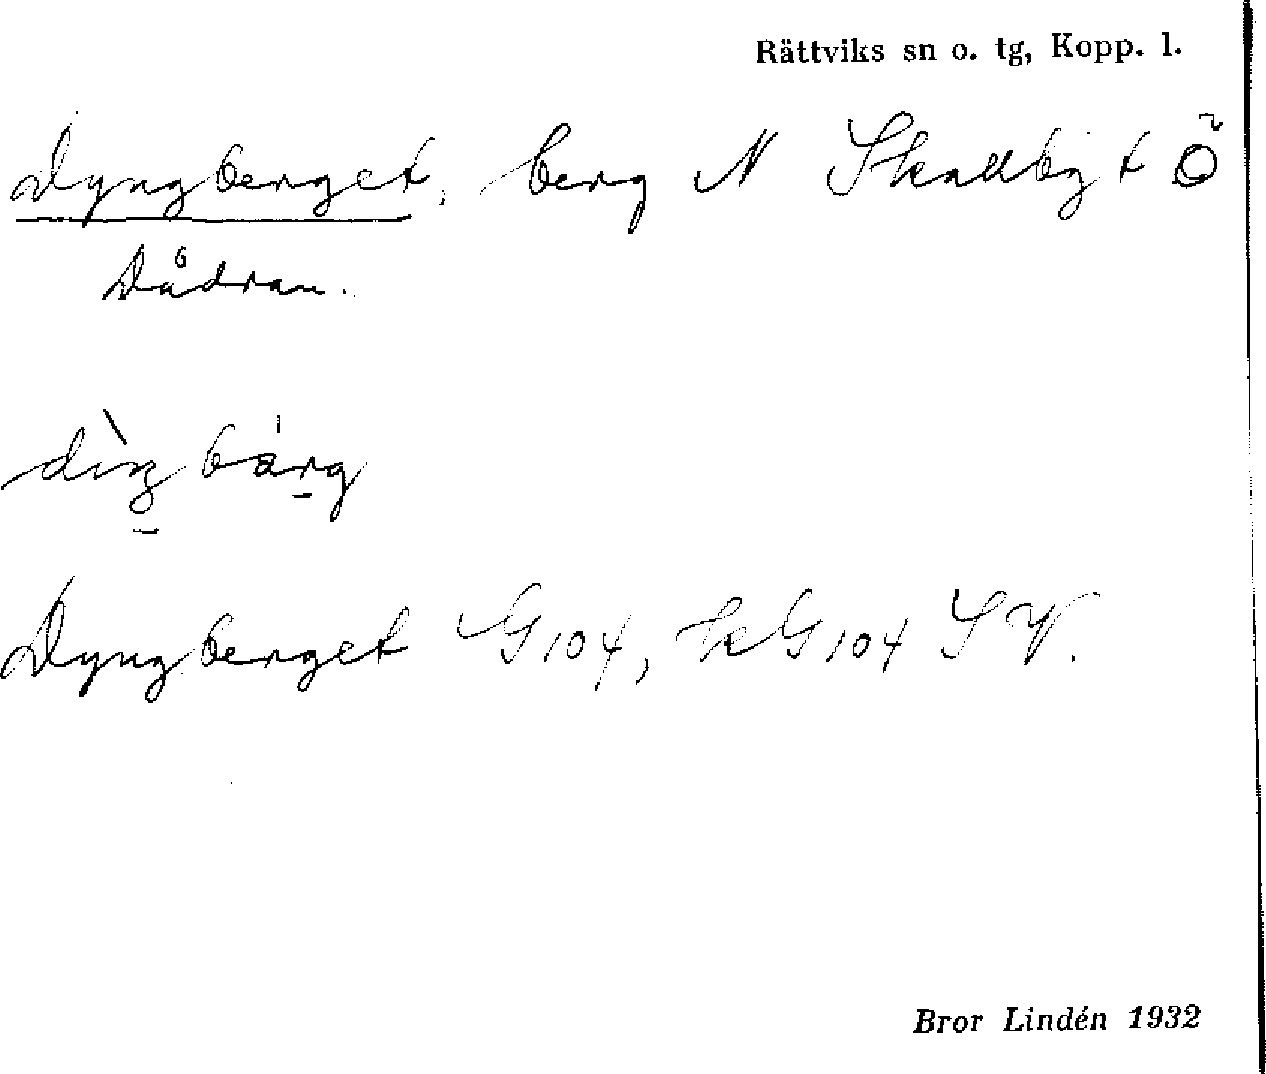 Rättviks sn o. tg, Kopp. l.
Dyngberget, berg N Skallbyt Ö
Dådran.
dìŋbárg
Dyngberget G104, SkG104 SV.
Bror Lindén 1932